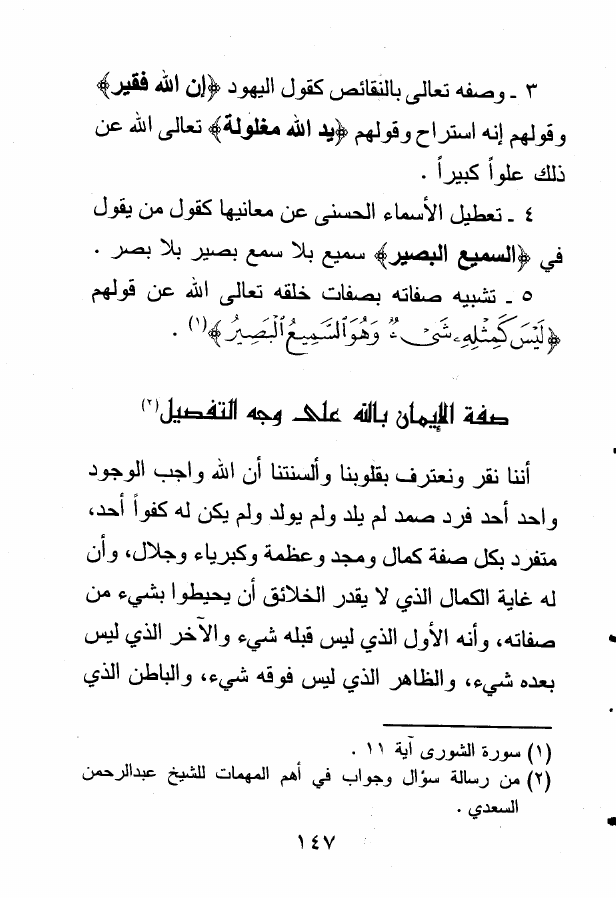 ٣ ـ وصفه تعالى بالنقائص كقول اليهود ﴿إن الله فقير﴾
وقولهم إنه استراح وقولهم ﴿يد الله مغلولة﴾ تعالى الله عن
ذلك علواً كبيراً .
٤ ـ تعطيل الأسماء الحسنى عن معانيها كقول من يقول
في ﴿السميع البصير﴾ سميع بلا سمع بصير بلا بصر .
٥ ـ تشبيه صفاته بصفات خلقه تعالى الله عن قولهم
﴿لَيْسَ كَمِثْلِهِۦ شَىْءٌ وَهُوَ السَّمِيعُ الْبَصِيرُ﴾(١) .
صفة الإيمان بالله على وجه التفصيل(٢)
أننا نقر ونعترف بقلوبنا وألسنتنا أن الله واجب الوجود
واحد أحد فرد صمد لم يلد ولم يولد ولم يكن له كفواً أحد،
متفرد بكل صفة كمال ومجد وعظمة وكبرياء وجلال، وأن
له غاية الكمال الذي لا يقدر الخلائق أن يحيطوا بشيء من
صفاته، وأنه الأول الذي ليس قبله شيء والآخر الذي ليس
بعده شيء، والظاهر الذي ليس فوقه شيء، والباطن الذي
(١) سورة الشورى آية ١١ .
(٢) من رسالة سؤال وجواب في أهم المهمات للشيخ عبدالرحمن
السعدي .
١٤٧